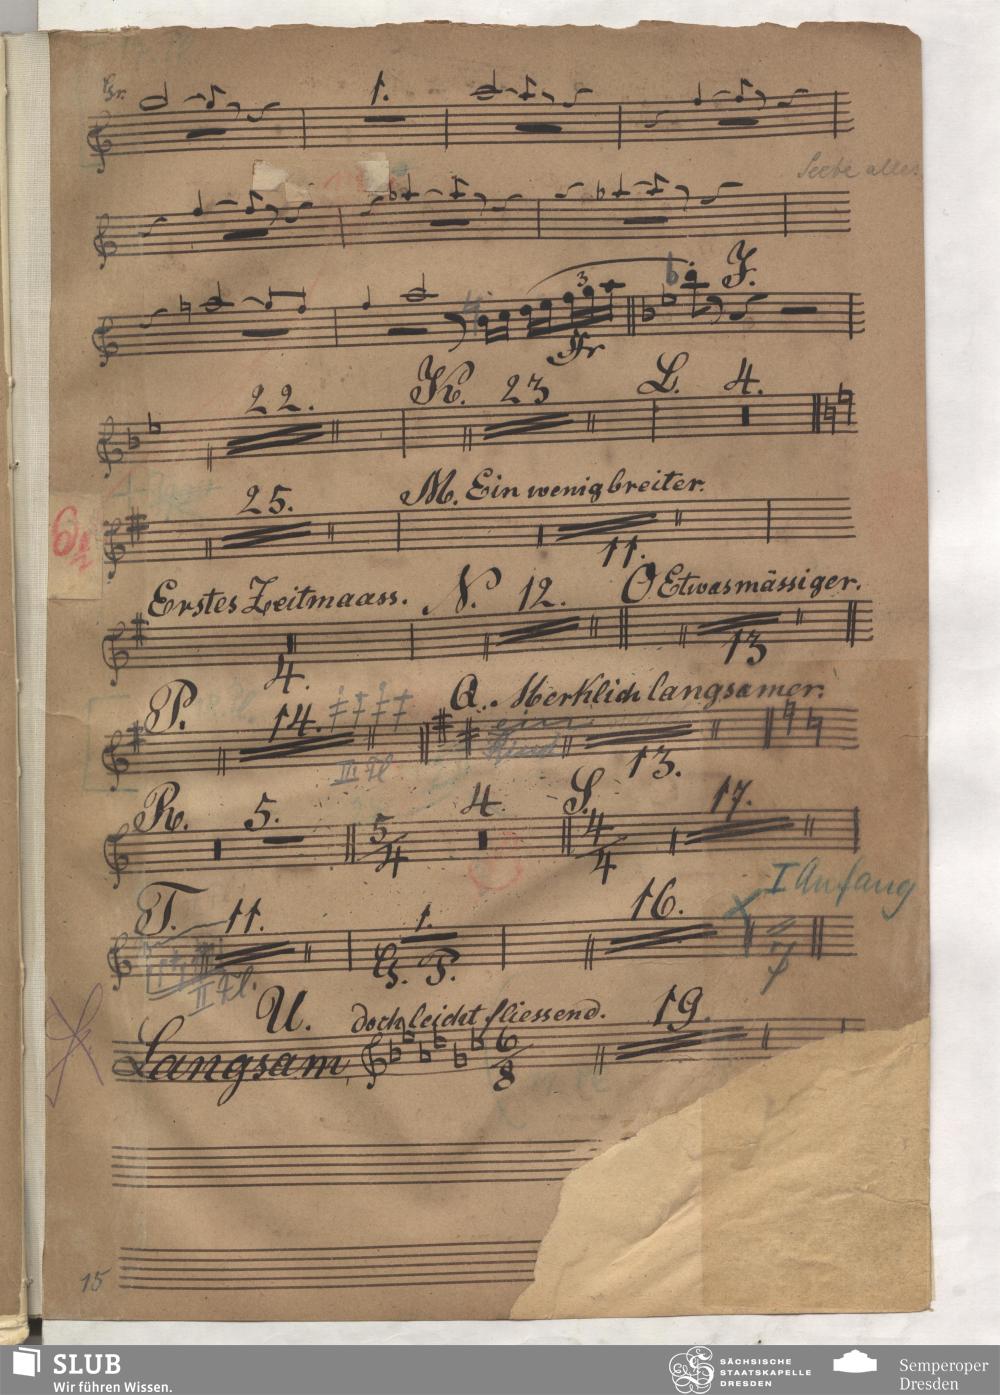 1.
3
J.
22. K. 23 L. 4.
25. M. Ein wenig breiter.
11.
Erstes Zeitmaass. N. 12. O Etwas mässiger.
4. 13
P. 14. Q. Merklich langsamer.
III Fl 13.
R. 5. 5/4 4 S. 4/4 17.
T. 11. 1. G. P. 16. I Anfang
II Fl. 7
U. doch leicht fliessend. 19.
Langsam 6/8
15
SLUB
Wir führen Wissen.
SÄCHSISCHE
STAATSKAPELLE
DRESDEN
Semperoper
Dresden